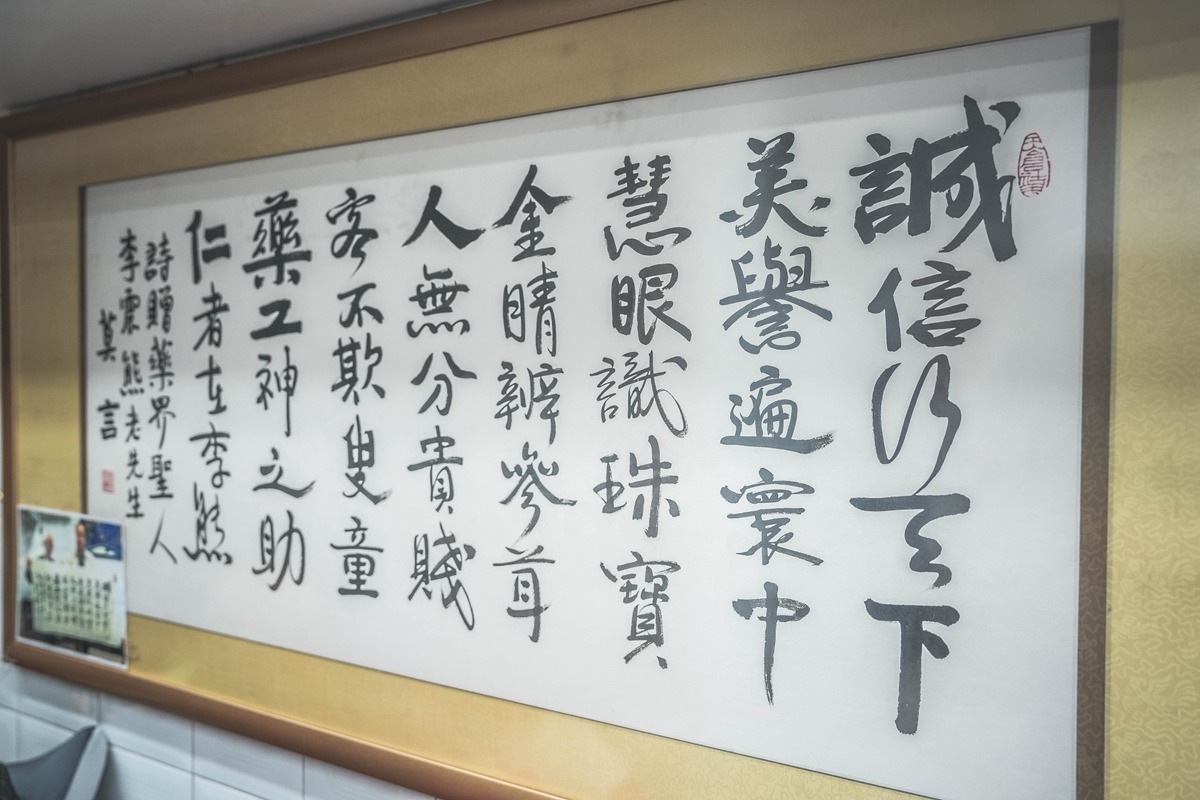 誠信行天下
美譽遍寰中
慧眼識珠寶
金睛辨參茸
人無分貴賤
客不欺叟童
藥工神之助
仁者在李熊
詩贈藥界聖人
李震熊老先生
莫言